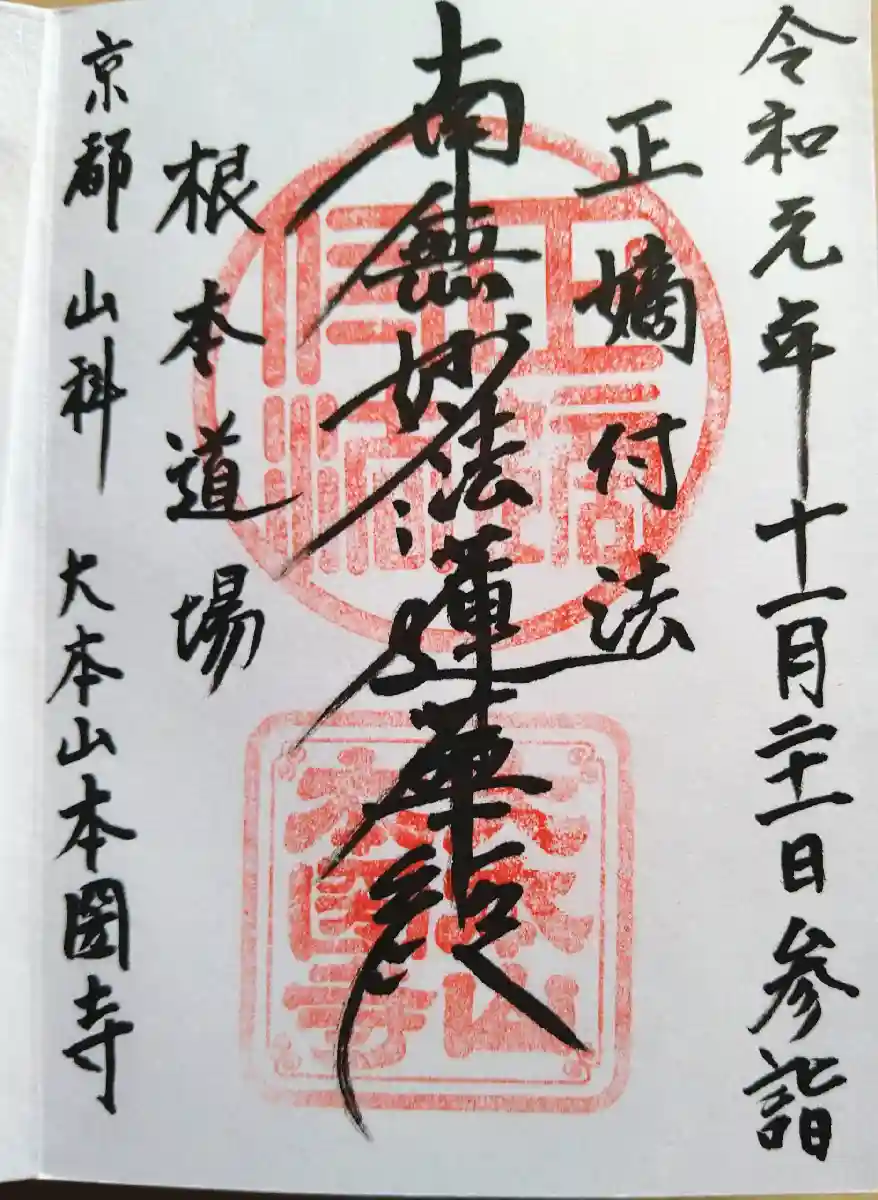 令和元年十一月二十一日参詣
正嫡付法
南無妙法蓮華経
根本道場
京都 山科 大本山本圀寺
大本山